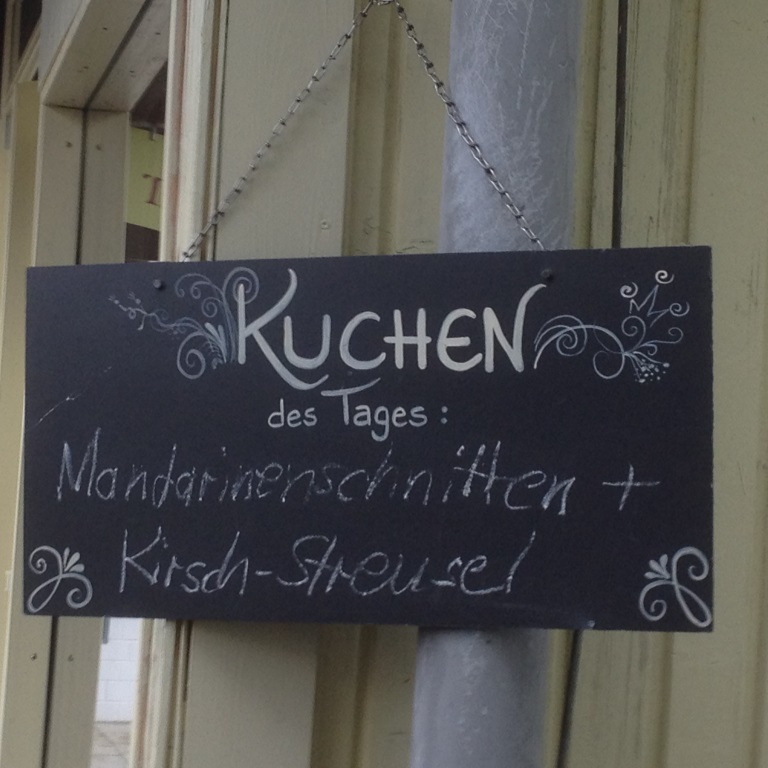 KUCHEN
des Tages:
Mandarinenschnitten +
Kirsch-Streusel